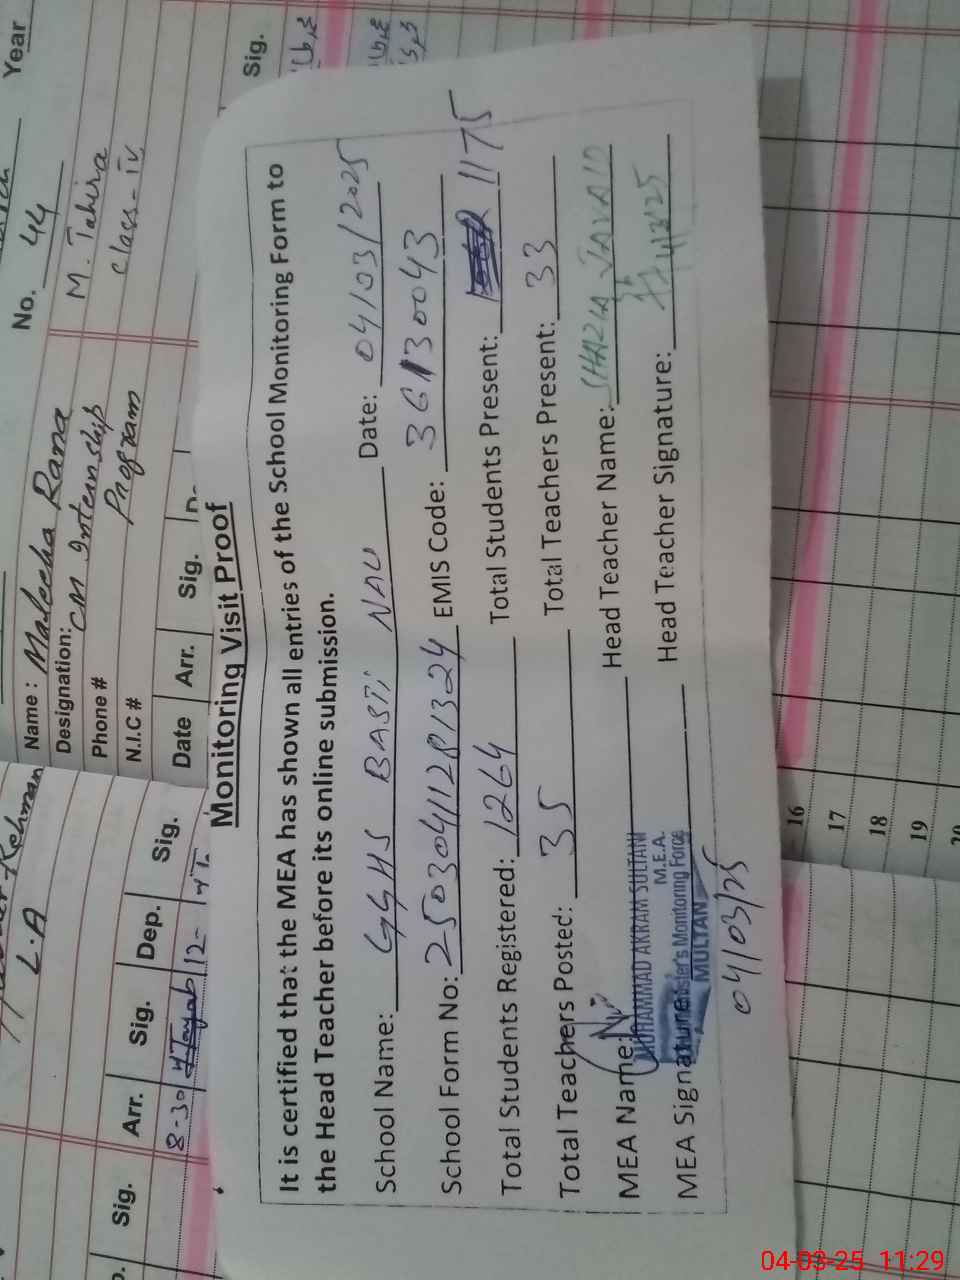 Monitoring Visit Proof
It is certified that the MEA has shown all entries of the School Monitoring Form to
the Head Teacher before its online submission.
School Name: GGHS BASTI NAU Date: 04/03/2025
School Form No: 2503041128 1324 EMIS Code: 36130043
Total Students Registered: 1264 Total Students Present: 1175
Total Teachers Posted: 35 Total Teachers Present: 33
MEA Name: Head Teacher Name: SHAZIA JAVAID
MUHAMMAD AKRAM SULTAN
M.E.A.
Monitoring Force
MULTAN
MEA Signature Head Teacher Signature:
04/03/25
Year
No. 44
Name: Maleeha Rana M. Tahira
Designation: CM Internship class-iv
Phone # Program
N.I.C #
Date Arr. Sig.
Sig.
Rehman
L.A
Sig. Arr. Sig. Dep. Sig.
8-30 Tayab 12-
16
17
18
19
20
04-03-25 11:29